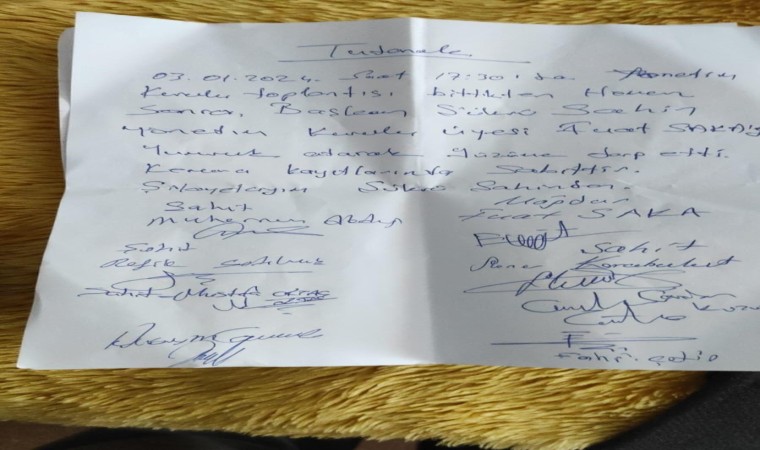 Tutanak
03.01.2024 Saat 17:30'da Yönetim
Kurulu toplantısı bittikten Hemen
Sonra, Başkan Şükrü Şahin
yönetim Kurulu üyesi Fuat SAKA'ya
Yumruk atarak Yüzüne darp etti.
Kamera kayıtlarında Sabittir.
Şikayetçiyim Şükrü Şahinden.
Şahit Mağdur
Muharrem Fuat SAKA
Şahit Şahit
Refik Karabulut
Şahit Mustafa
Fahri Çetin